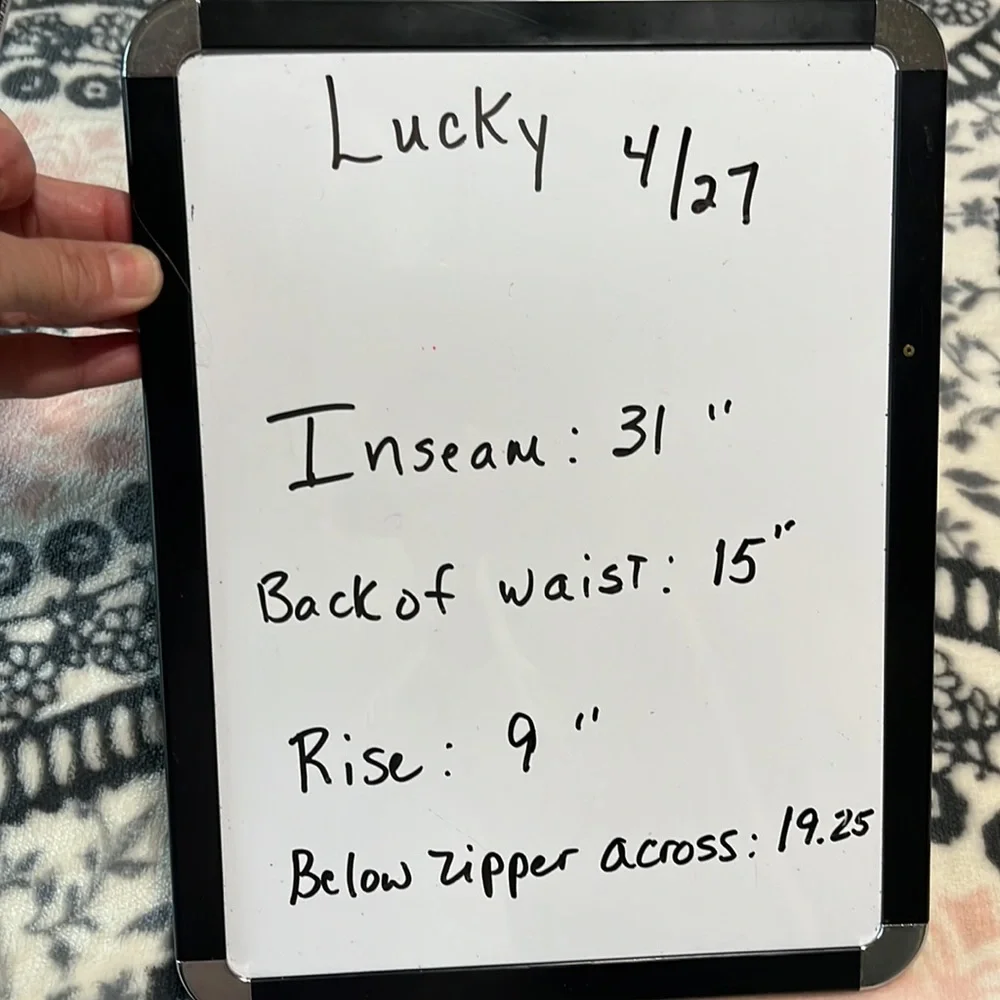 Lucky 4/27
Inseam: 31 "
Back of waist: 15"
Rise: 9 "
Below zipper across: 19.25